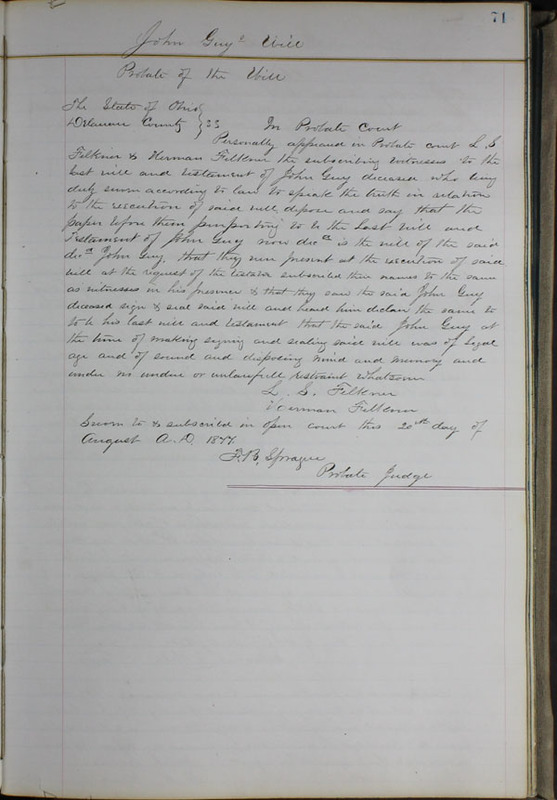 71
John Guy's Will
Probate of the Will
The State of Ohio
Delaware County } SS In Probate Court
Personally appeared in Probate court L. S
Felkner & Herman Felkner the subscribing witnesses to the
last will and testament of John Guy deceased who being
duly sworn according to law to speak the truth in relation
to the execution of said will, depose and say that the
paper before them purporting to be the Last will and
Testament of John Guy now decd is the will of the said
decd John Guy, that they were present at the execution of said
will at the request of the testator subscribed their names to the same
as witnesses in his presence & that they saw the said John Guy
deceased sign & seal said will and heard him declare the same to
to be his last will and testament that the said John Guy at
the time of making signing and sealing said will was of legal
age and of sound and disposing mind and memory and
under no undue or unlawfull restraint whatsoever
L. S. Felkner
Herman Felkner
Sworn to & subscribed in open court this 20th day of
August A.D. 1877.
F. B. Sprague
Probate Judge